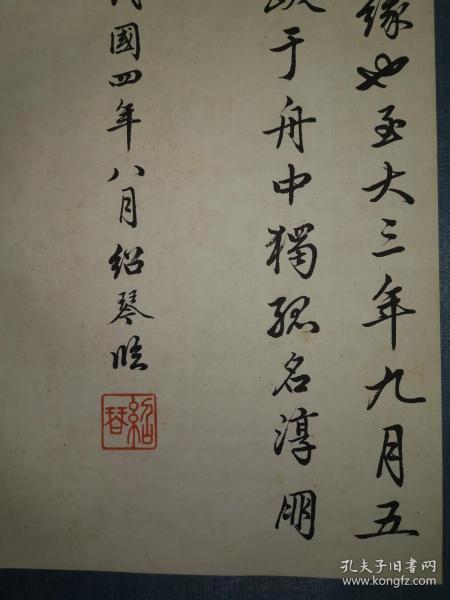 緣也至大三年九月五
跋于舟中獨孤名淳朋
國四年八月紹琴臨
紹琴
孔夫子旧书网
www.kongfz.com